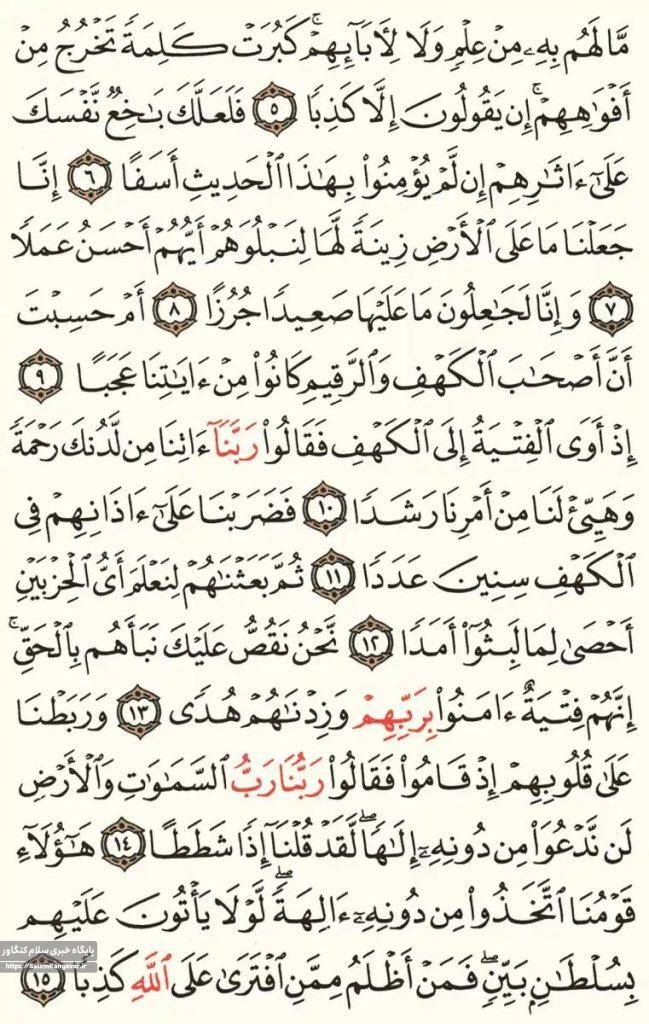 مَّا لَهُم بِهِۦ مِنْ عِلْمٍ وَلَا لِأَبَآئِهِمْ ۚ كَبُرَتْ كَلِمَةً تَخْرُجُ مِنْ
أَفْوَٰهِهِمْ ۚ إِن يَقُولُونَ إِلَّا كَذِبًا ٥ فَلَعَلَّكَ بَٰخِعٌ نَّفْسَكَ
عَلَىٰٓ ءَاثَٰرِهِمْ إِن لَّمْ يُؤْمِنُوا۟ بِهَٰذَا ٱلْحَدِيثِ أَسَفًا ٦ إِنَّا
جَعَلْنَا مَا عَلَى ٱلْأَرْضِ زِينَةً لَّهَا لِنَبْلُوَهُمْ أَيُّهُمْ أَحْسَنُ عَمَلًا
٧ وَإِنَّا لَجَٰعِلُونَ مَا عَلَيْهَا صَعِيدًا جُرُزًا ٨ أَمْ حَسِبْتَ
أَنَّ أَصْحَٰبَ ٱلْكَهْفِ وَٱلرَّقِيمِ كَانُوا۟ مِنْ ءَايَٰتِنَا عَجَبًا ٩
إِذْ أَوَى ٱلْفِتْيَةُ إِلَى ٱلْكَهْفِ فَقَالُوا۟ رَبَّنَآ ءَاتِنَا مِن لَّدُنكَ رَحْمَةً
وَهَيِّئْ لَنَا مِنْ أَمْرِنَا رَشَدًا ١٠ فَضَرَبْنَا عَلَىٰٓ ءَاذَانِهِمْ فِى
ٱلْكَهْفِ سِنِينَ عَدَدًا ١١ ثُمَّ بَعَثْنَٰهُمْ لِنَعْلَمَ أَىُّ ٱلْحِزْبَيْنِ
أَحْصَىٰ لِمَا لَبِثُوٓا۟ أَمَدًا ١٢ نَّحْنُ نَقُصُّ عَلَيْكَ نَبَأَهُم بِٱلْحَقِّ ۚ
إِنَّهُمْ فِتْيَةٌ ءَامَنُوا۟ بِرَبِّهِمْ وَزِدْنَٰهُمْ هُدًى ١٣ وَرَبَطْنَا
عَلَىٰ قُلُوبِهِمْ إِذْ قَامُوا۟ فَقَالُوا۟ رَبُّنَا رَبُّ ٱلسَّمَٰوَٰتِ وَٱلْأَرْضِ
لَن نَّدْعُوَا۟ مِن دُونِهِۦٓ إِلَٰهًا ۖ لَّقَدْ قُلْنَآ إِذًا شَطَطًا ١٤ هَٰٓؤُلَآءِ
قَوْمُنَا ٱتَّخَذُوا۟ مِن دُونِهِۦٓ ءَالِهَةً ۖ لَّوْلَا يَأْتُونَ عَلَيْهِم
بِسُلْطَٰنٍۭ بَيِّنٍ ۖ فَمَنْ أَظْلَمُ مِمَّنِ ٱفْتَرَىٰ عَلَى ٱللَّهِ كَذِبًا ١٥
پایگاه خبری سلام کنگاور
https://Salamkangavar.ir